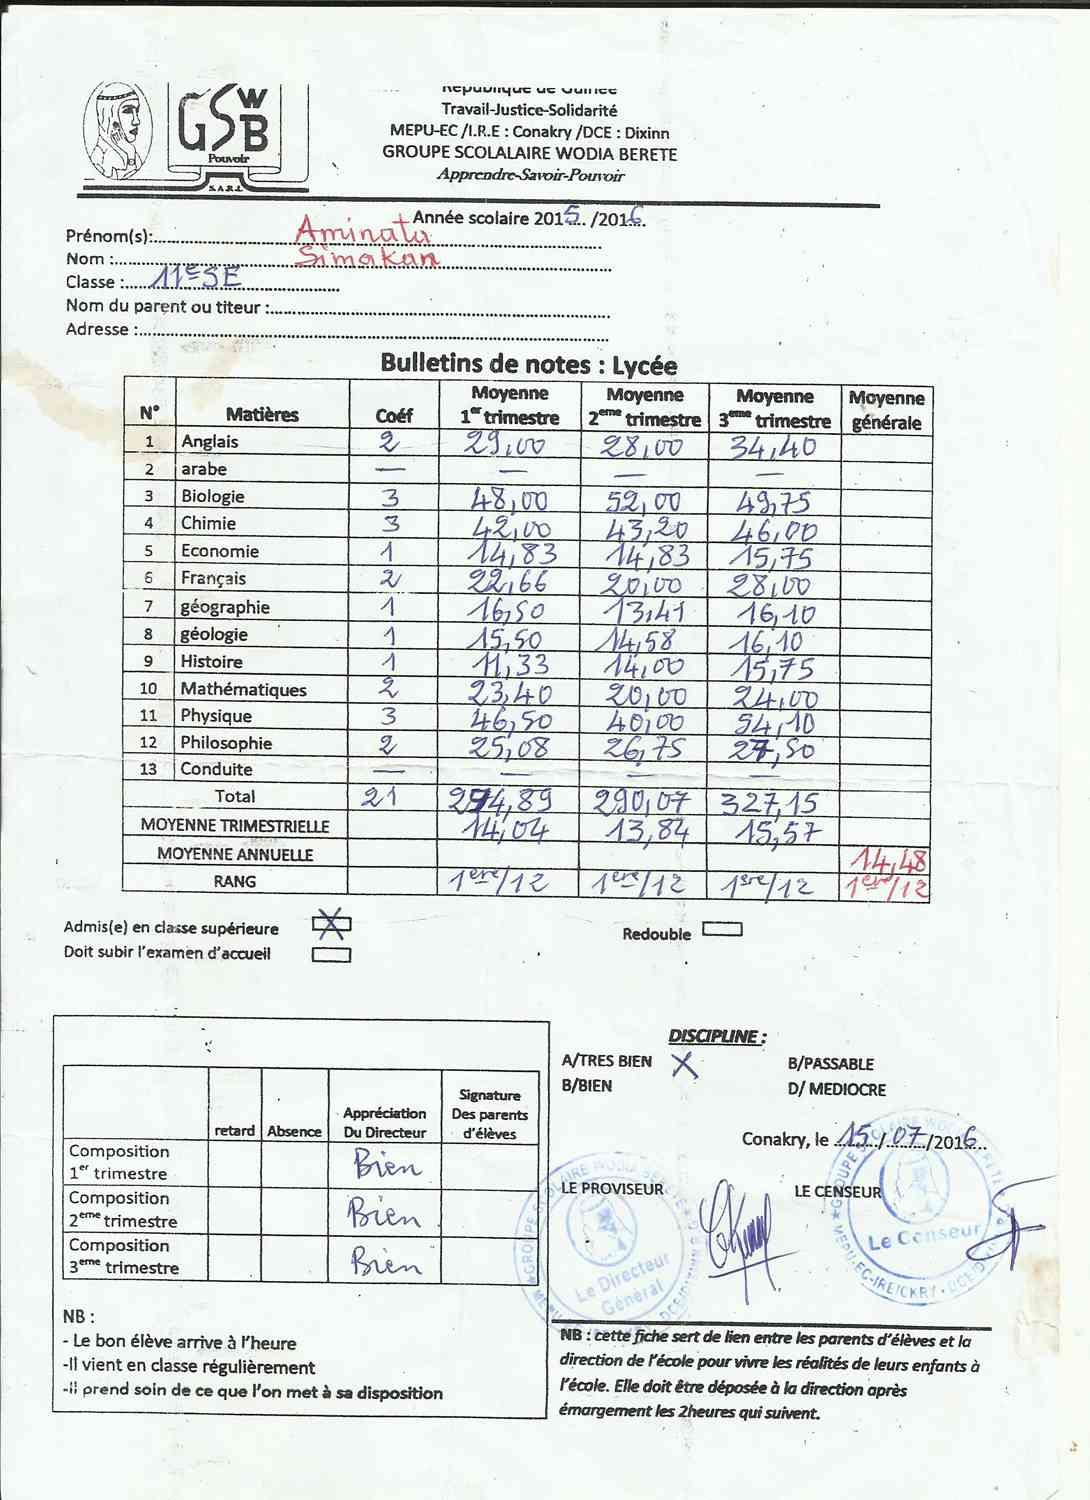 GSWB
Pouvoir
S.A.R.L
République de Guinée
Travail-Justice-Solidarité
MEPU-EC /I.R.E : Conakry /DCE : Dixinn
GROUPE SCOLALAIRE WODIA BERETE
Apprendre-Savoir-Pouvoir
Année scolaire 2015.. /2016.
Prénom(s): Aminata
Nom : Simakan
Classe : 11e SE
Nom du parent ou titeur :
Adresse :
Bulletins de notes : Lycée
N° Matières Coéf Moyenne 1er trimestre Moyenne 2eme trimestre Moyenne 3eme trimestre Moyenne générale
1 Anglais 2 29,00 28,00 34,40
2 arabe — — — —
3 Biologie 3 48,00 52,00 49,75
4 Chimie 3 42,00 43,20 46,00
5 Economie 1 14,83 14,83 15,75
6 Français 2 22,66 20,00 28,00
7 géographie 1 16,50 13,41 16,10
8 géologie 1 15,50 14,58 16,10
9 Histoire 1 11,33 14,00 15,75
10 Mathématiques 2 23,40 20,00 24,00
11 Physique 3 46,50 40,00 54,10
12 Philosophie 2 25,08 26,75 27,50
13 Conduite — — — —
Total 21 294,89 290,07 327,15
MOYENNE TRIMESTRIELLE 14,04 13,84 15,57
MOYENNE ANNUELLE 14,48
RANG 1ère/12 1ère/12 1ère/12 1ère/12
Admis(e) en classe supérieure X
Redouble
Doit subir l'examen d'accueil
DISCIPLINE :
A/TRES BIEN X B/PASSABLE
B/BIEN D/ MEDIOCRE
retard Absence Appréciation Du Directeur Signature Des parents d'élèves
Composition 1er trimestre Bien
Composition 2eme trimestre Bien
Composition 3eme trimestre Bien
Conakry, le 15/07/2016..
LE PROVISEUR LE CENSEUR
Le Directeur Général
Le Censeur
NB :
- Le bon élève arrive à l'heure
-Il vient en classe régulièrement
-Il prend soin de ce que l'on met à sa disposition
NB : cette fiche sert de lien entre les parents d'élèves et la
direction de l'école pour vivre les réalités de leurs enfants à
l'école. Elle doit être déposée à la direction après
émargement les 2heures qui suivent.